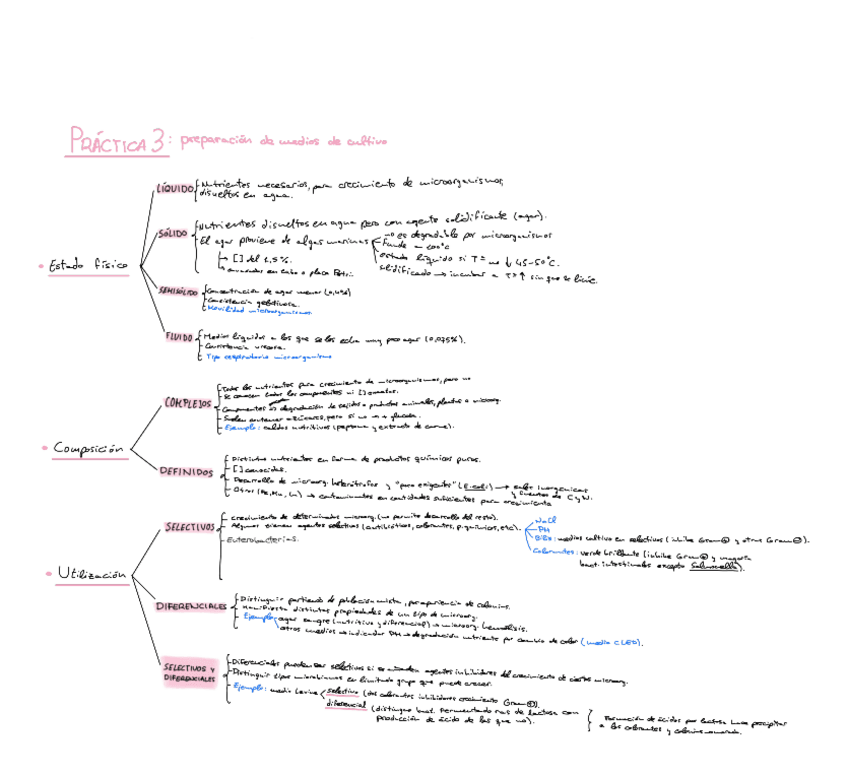 PRÁCTICA 3: preparación de medios de cultivo
• Estado físico
LÍQUIDO
- Nutrientes necesarios, para crecimiento de microorganismos,
disueltos en agua.
SÓLIDO
- Nutrientes disueltos en agua pero con agente solidificante (agar).
- El agar proviene de algas marinas
no es degradable por microorganismos
Funde a 100°C
estado líquido si Tª no ↓ 45-50°C.
solidificado → incubar a Tª ↑ sin que se licúe.
↳ [] del 1,5%.
↳ envasados en tubo o placa Petri.
SEMISÓLIDO
- Concentración de agar menor (0,4%)
- Consistencia gelatinosa.
- Movilidad microorganismos.
FLUIDO
- Medios líquidos a los que se les echa muy poco agar (0,075%).
- Consistencia viscosa.
- Tipo respiratorio microorganismo
• Composición
COMPLEJOS
- Todos los nutrientes para crecimiento de microorganismos, pero no
se conocen todos los componentes ni [] exactas.
- Componentes degradación de tejidos o productos animales, plantas o microorg.
- Suelen contener azúcares, pero si no → + glucosa.
- Ejemplo: caldos nutritivos (peptona y extracto de carne).
DEFINIDOS
- Distintos nutrientes en forma de productos químicos puros.
- [] conocidas.
- Desarrollo de microorg. heterótrofos y "poco exigente" (E.coli) → inorgánicas
y fuentes de C y N.
- Otros (Fe, Mn, ) → contaminantes en cantidades suficientes para crecimiento
• Utilización
SELECTIVOS
- crecimiento de determinados microorg. (no permite desarrollo del resto).
- Algunos tienen agentes selectivos (antibióticos, colorantes, p. químicos, etc).
- Enterobacterias.
NaCl
PH
Bilis: medios cultivo en selectivos (inhibe Gram⊕ y otras Gram⊖).
Colorantes: verde brillante (inhibe Gram⊕ y mayoría
bact. intestinales excepto Salmonella).
DIFERENCIALES
- Distinguir partiendo de población mixta, por apariencia de colonias.
- Manifiesta distintas propiedades de un tipo de microorg.
- Ejemplo: agar sangre (nutritivo y diferencial) → microorg. hemólisis.
otros medios → indicador PH → degradación nutriente por cambio de color (medio CLED).
SELECTIVOS Y
DIFERENCIALES
- Diferenciales pueden ser selectivos si se añaden agentes inhibidores del crecimiento de ciertos microorg.
- Distinguir tipos microbianos en limitado grupo que puede crecer.
- Ejemplo: medio Levine
selectivo (dos colorantes inhibidores crecimiento Gram⊕).
diferencial (distingue bact. fermentadoras de lactosa con
producción de ácido de las que no).
Formación de ácidos por lactosa hace precipitar
a los colorantes y colonia